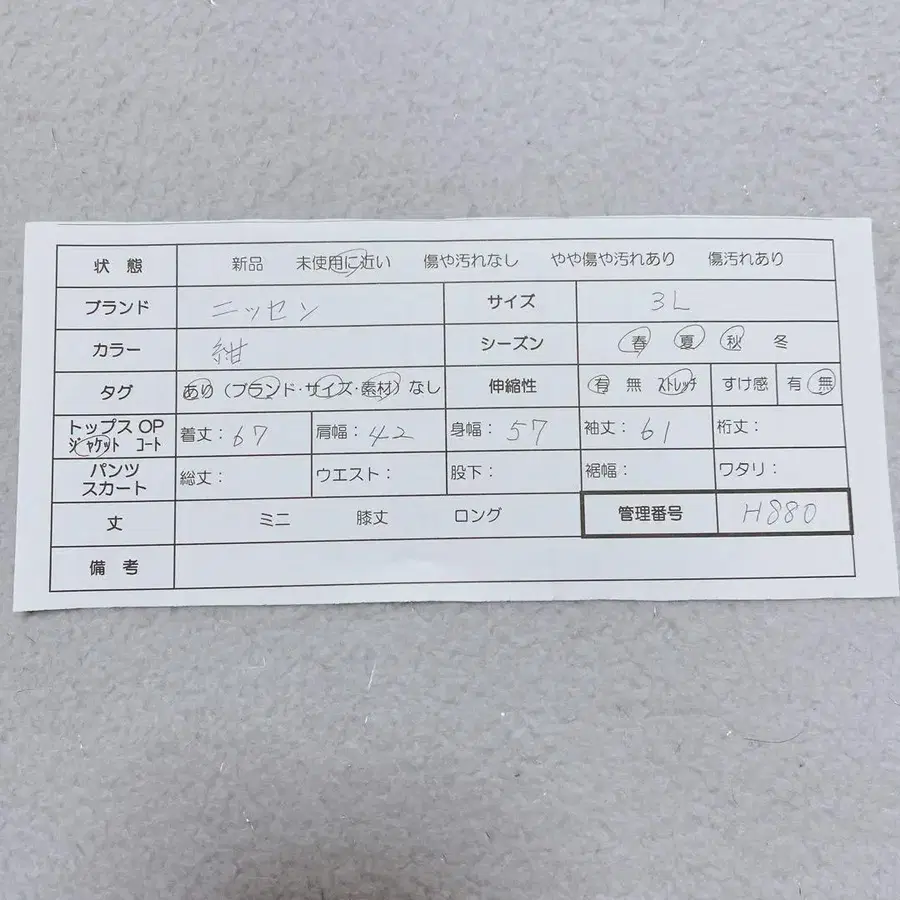 状態 新品 未使用に近い 傷や汚れなし やや傷や汚れあり 傷汚れあり
ブランド ニッセン サイズ 3L
カラー 紺 シーズン 春 夏 秋 冬
タグ あり (ブランド・サイズ・素材) なし 伸縮性 有 無 ストレッチ すけ感 有 無
トップス OP
ジャケット コート 着丈:67 肩幅:42 身幅:57 袖丈:61 裄丈:
パンツ
スカート 総丈: ウエスト: 股下: 裾幅: ワタリ:
丈 ミニ 膝丈 ロング 管理番号 H880
備考